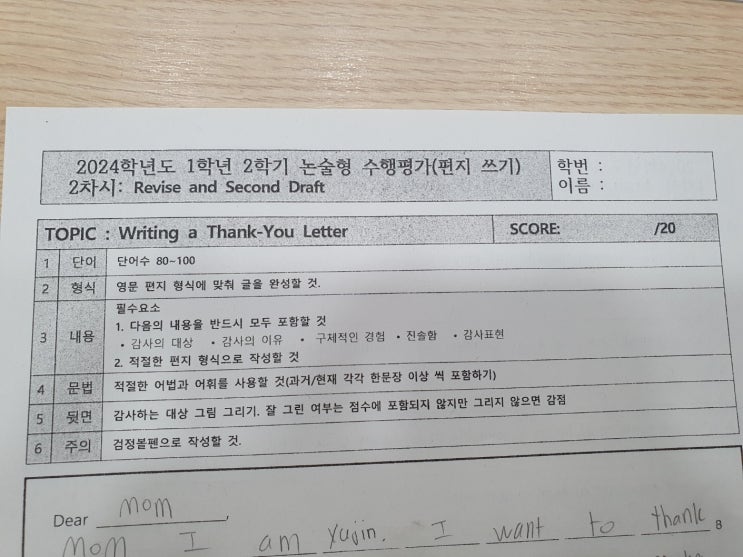 2024학년도 1학년 2학기 논술형 수행평가(편지 쓰기)
2차시: Revise and Second Draft
학번 :
이름 :
TOPIC : Writing a Thank-You Letter SCORE: /20
1 단어 단어수 80~100
2 형식 영문 편지 형식에 맞춰 글을 완성할 것.
3 내용 필수요소
1. 다음의 내용을 반드시 모두 포함할 것
• 감사의 대상 • 감사의 이유 • 구체적인 경험 • 진솔함 • 감사표현
2. 적절한 편지 형식으로 작성할 것
4 문법 적절한 어법과 어휘를 사용할 것(과거/현재 각각 한문장 이상 씩 포함하기)
5 뒷면 감사하는 대상 그림 그리기. 잘 그린 여부는 점수에 포함되지 않지만 그리지 않으면 감점
6 주의 검정볼펜으로 작성할 것.
Dear mom,
Mom I am Yujin. I want to thank 8